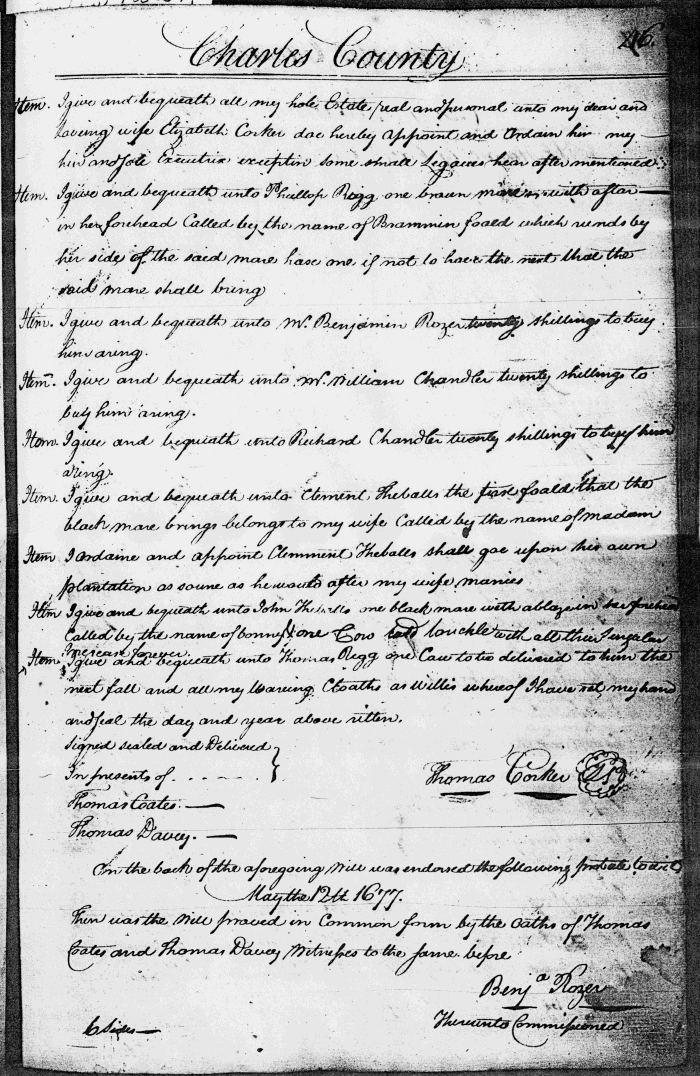 46.
Charles County
Item. I give and bequeath all my hole Estate real and personal unto my dear and
loveing wife Elyzabeth Corker doe hereby appoint and Ordain her my
heir and sole Executrix exceptin some small Legacies hear after mentioned
Item. I give and bequeath unto Phallop Regg one brown mare with a ftar
in her forehead Called bey the name of Brammin foald which runds by
her side of the said mare hase one if not to have the next that the
said mare shall bring
Item. I give and bequeath unto Mr. Benjamin Rozer twenty shillings to buy
him aring.
Item. I give and bequeath unto Mr. William Chandler twenty shillings to
buy him aring.
Item. I give and bequeath unto Richard Chandler twenty shillings to buy him
aring.
Item. I give and bequeath unto Clement Theballs the first foald that the
black mare brings belongs to my wife Called by the name of madam
Item I ordaine and appoint Clemment Theballs shall goe upon his own
plantation as soune as he would after my wife marries
Item I give and bequeath unto John Theballs one black mare with ablaze in her forehead
Called by the name of bonny & one Cow Called buckle with all their
Increase forever.
Item. I give and bequeath unto Thomas Regg one Cow to be delivered to him the
next fall and all my Waring Cloaths as Willis whereof I have set my hand
and seal the day and year above ritten.
Signed sealed and Delivered }
In presents of . . . . . .
Thomas Corker
Thomas Coates.
Thomas Davey.
On the back of the aforegoing Will was endorsed the following probate to wit
May the 12th 1677.
Then was the Will proved in Common form by the Oaths of Thomas
Coates and Thomas Davey Witnefses to the same before
Benja Rozer
Thereunto Commifsioned
6 Sides